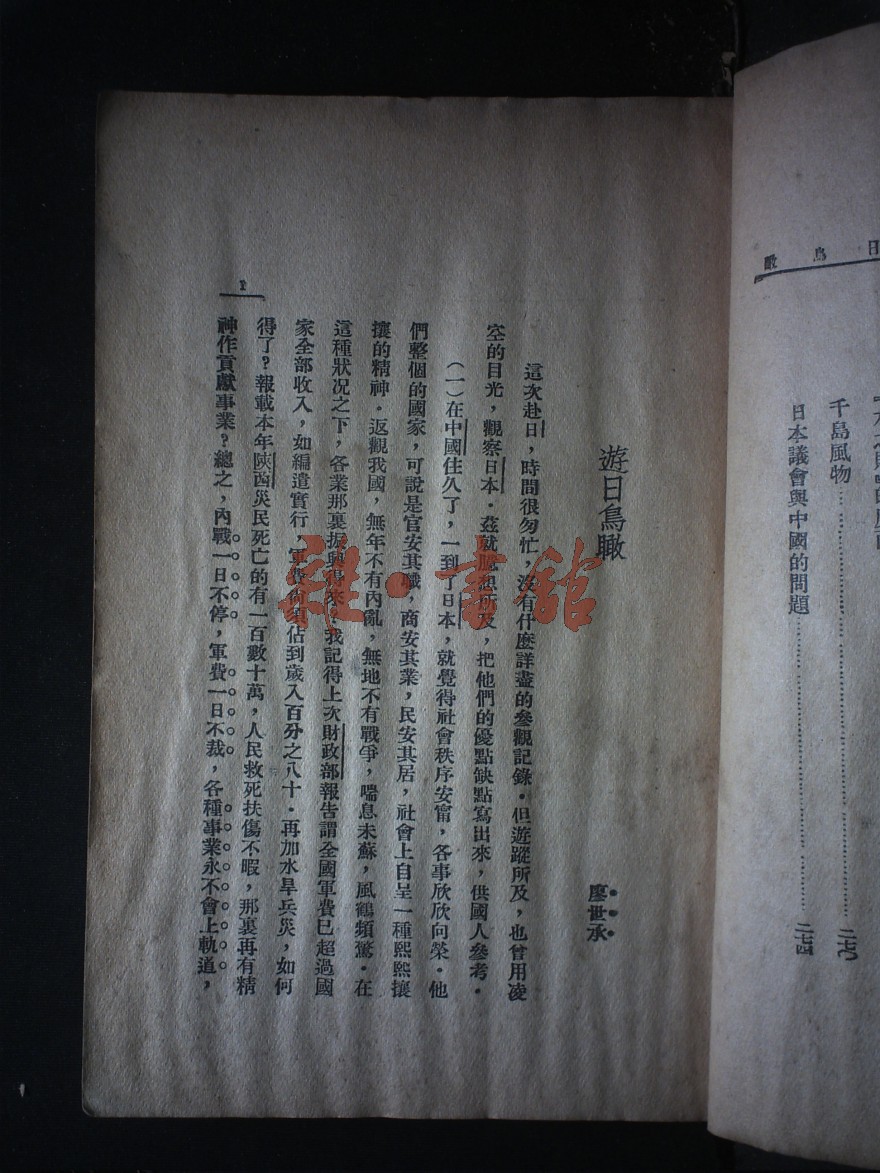 日鳥瞰
千島風物……二七〇
日本議會與中國的問題……二七四
遊日鳥瞰
廖世承
這次赴日，時間很匆忙，沒有什麼詳盡的參觀記錄．但遊蹤所及，也曾用凌
空的目光，觀察日本．茲就臆想所及，把他們的優點缺點寫出來，供國人參考．
（一）在中國住久了，一到了日本，就覺得社會秩序安甯，各事欣欣向榮．他
們整個的國家，可說是官安其職，商安其業，民安其居，社會上自呈一種熙熙攘
攘的精神．返觀我國，無年不有內亂，無地不有戰爭，喘息未蘇，風鶴頻驚．在
這種狀况之下，各業那裏振興得來？我記得上次財政部報告謂全國軍費已超過國
家全部收入，如編遣實行，軍費尚須佔到歲入百分之八十．再加水旱兵災，如何
得了？報載本年陝西災民死亡的有一百數十萬，人民救死扶傷不暇，那裏再有精
神作貢獻事業？總之，內戰一日不停，軍費一日不裁，各種事業永不會上軌道，
1
雜·書館